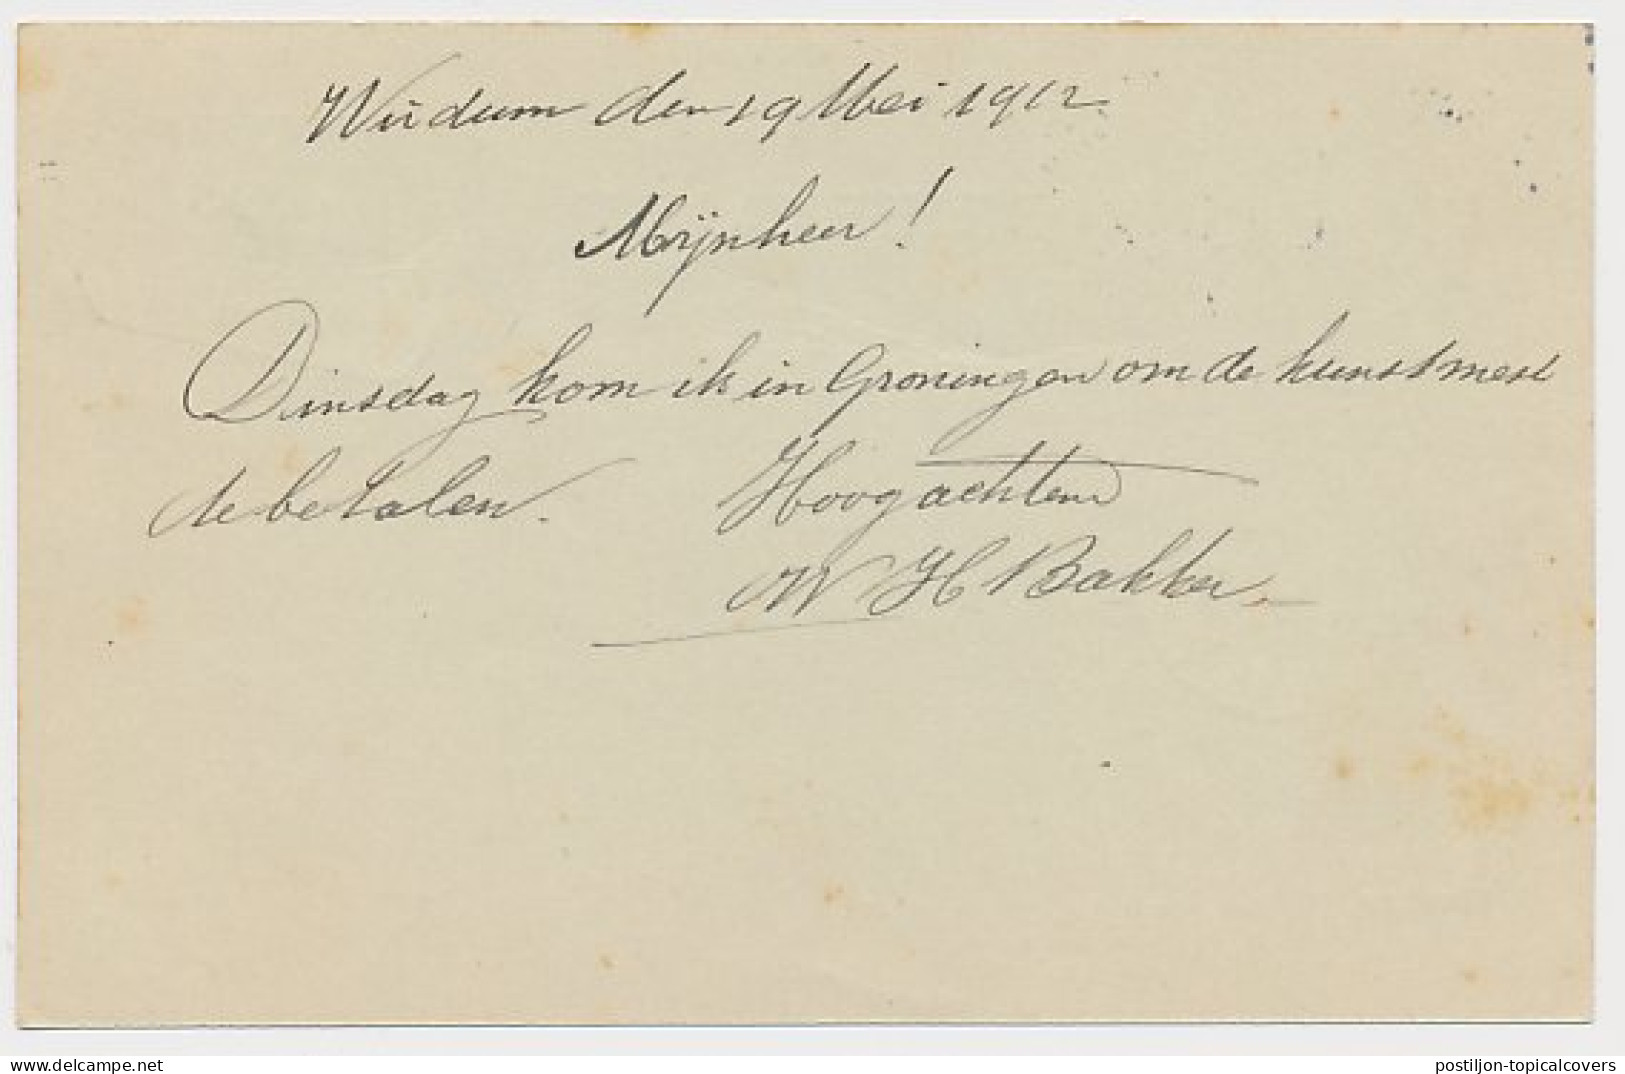 Wirdum den 19 Mei 1912
Mijnheer!
Dinsdag kom ik in Groningen om de kunstmest
te betalen. Hoogachtend
W H Bakker
postiljon-topicalcovers